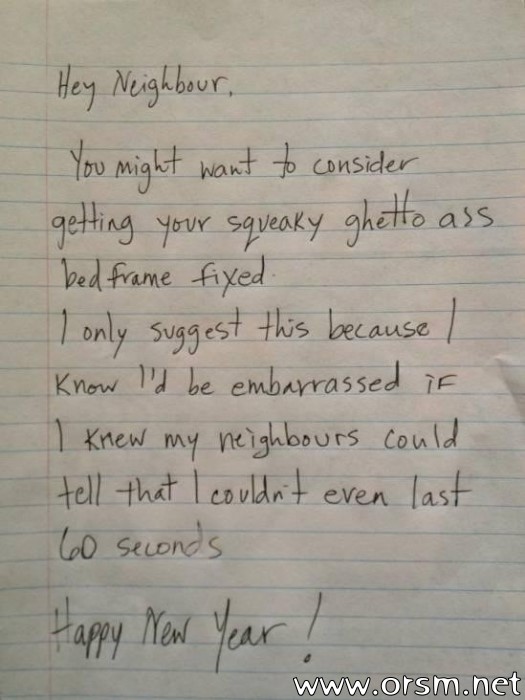 Hey Neighbour,
You might want to consider
getting your squeaky ghetto ass
bedframe fixed.
I only suggest this because I
know I'd be embarrassed if
I knew my neighbours could
tell that I couldn't even last
60 seconds
Happy New Year!
www.orsm.net